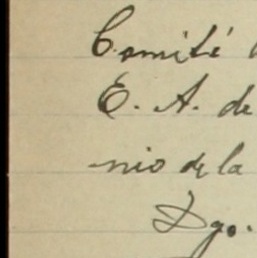 Comité
E. A. de
nio de la
Dgo.